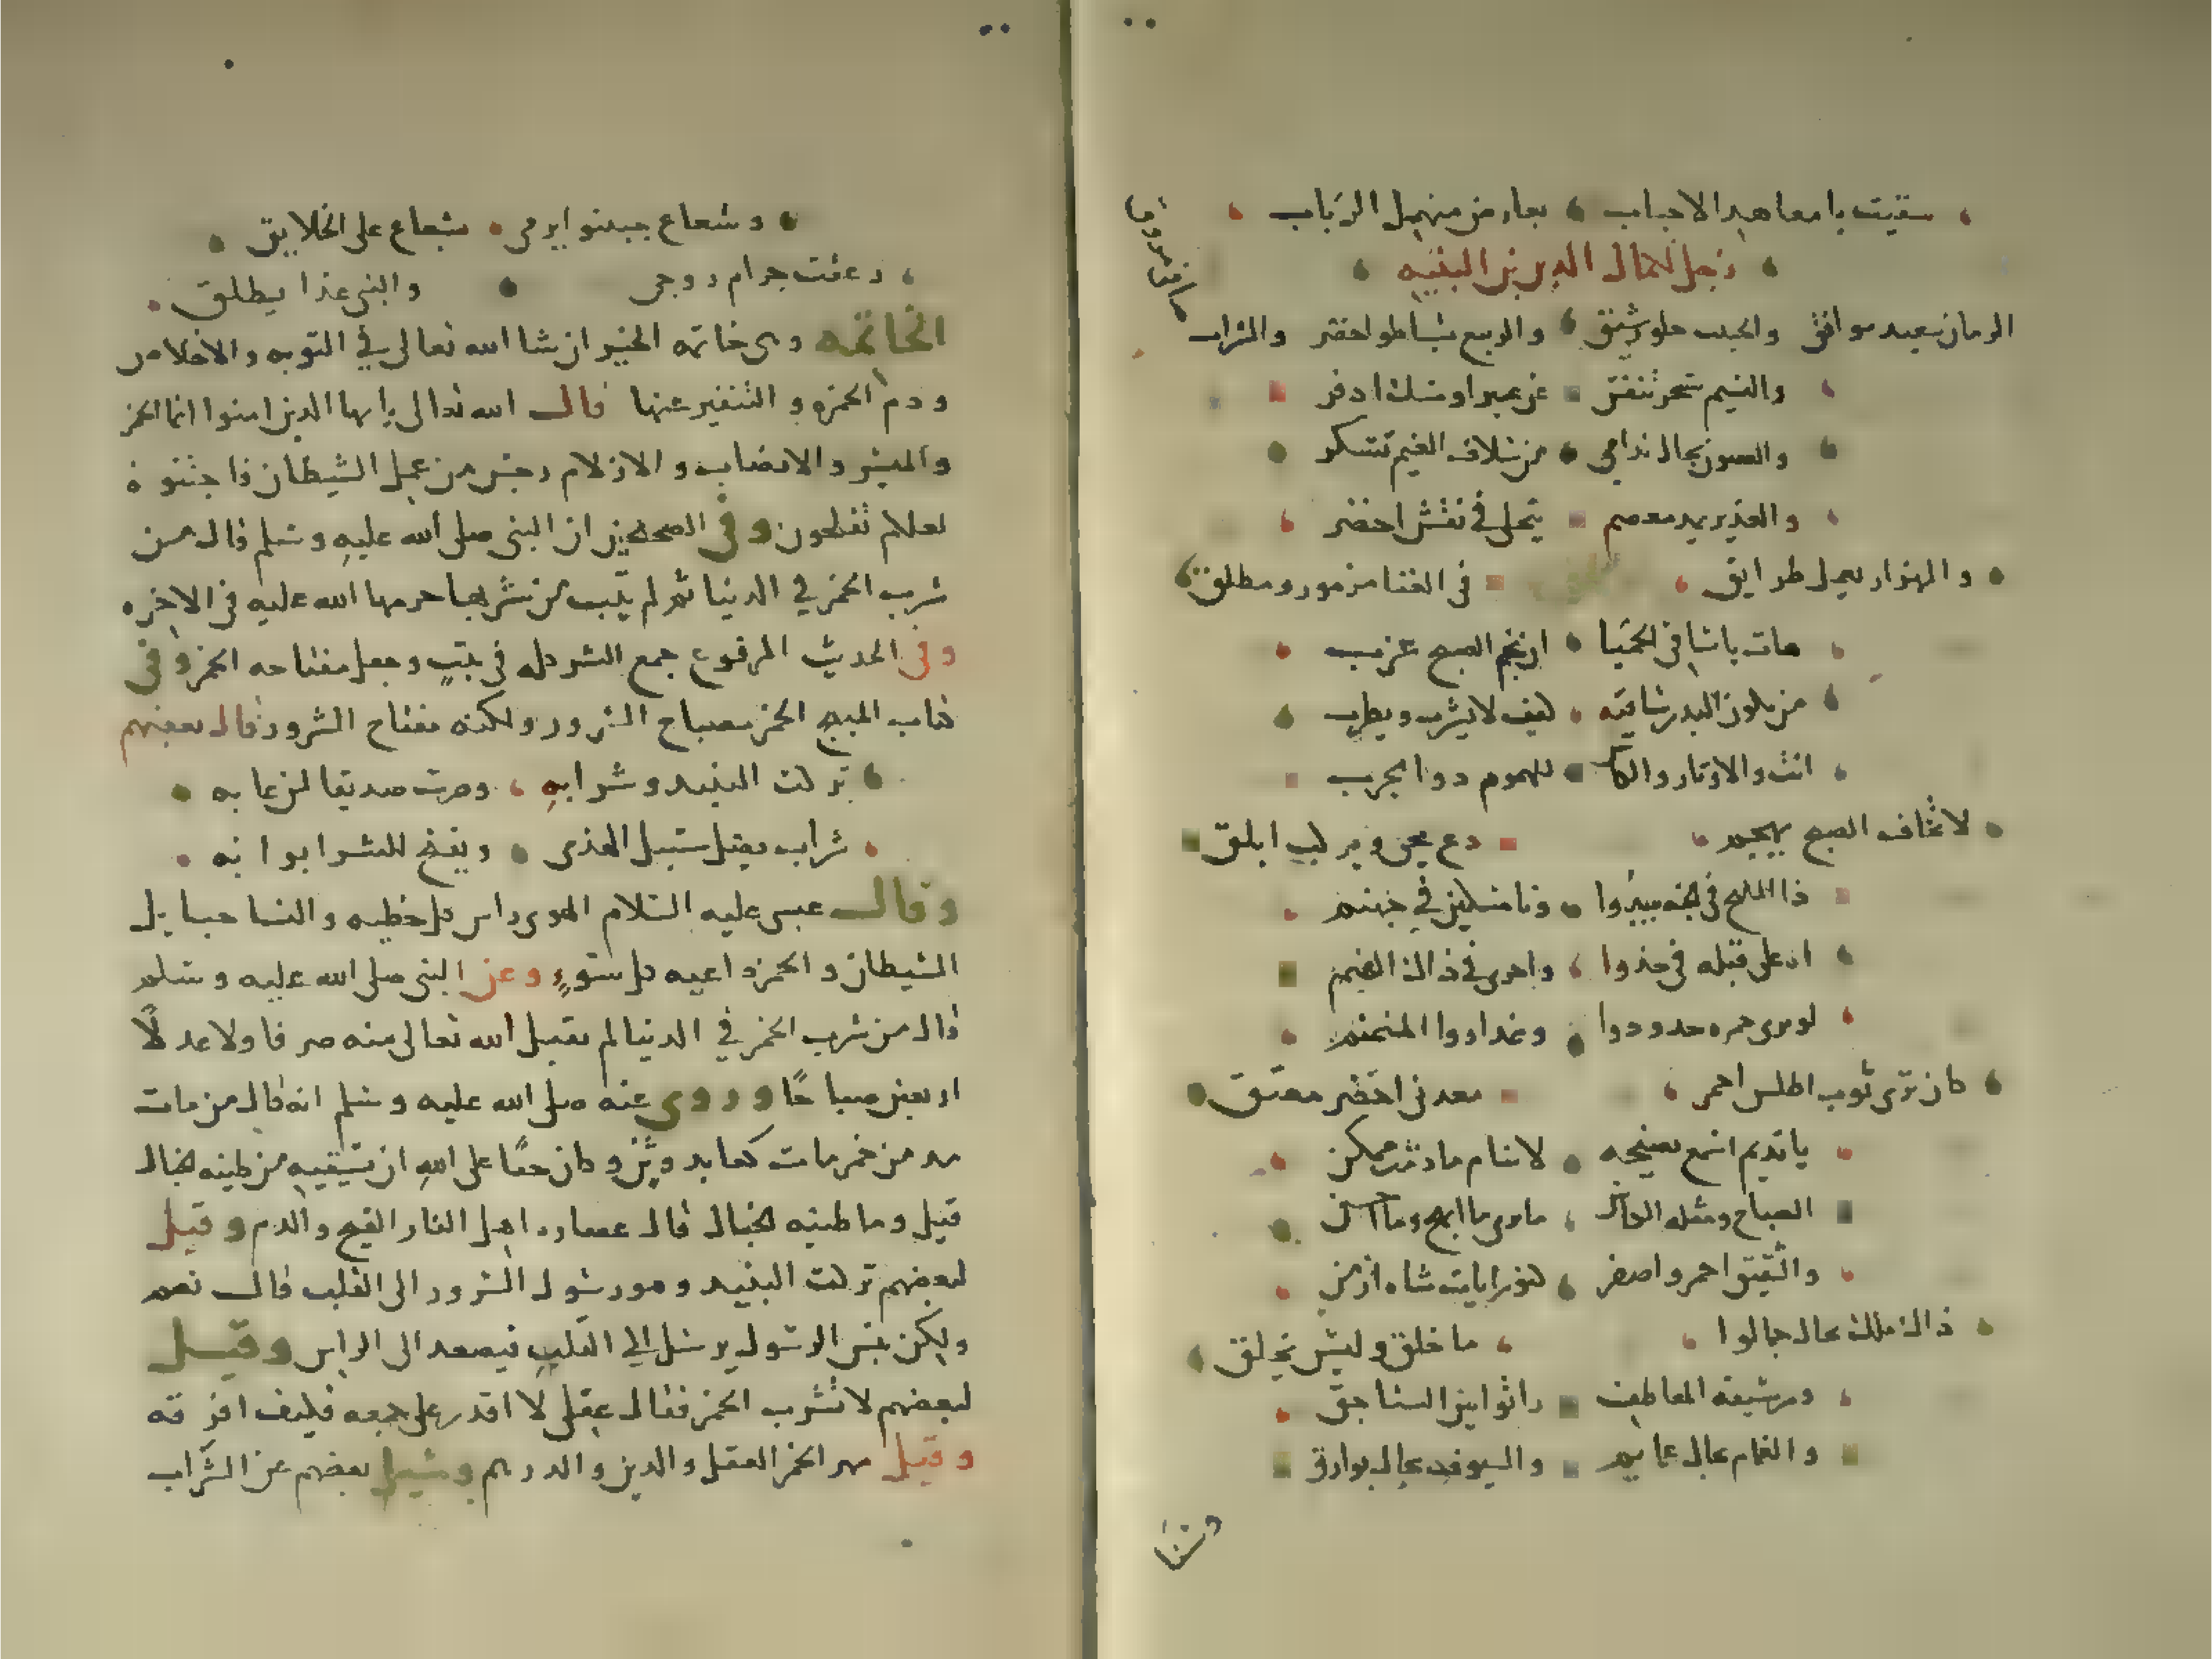 سقيت يا معاهد الاحباب بعارض منهمل الرباب
زجل لكمال الدين بن النبيه
الزمان سعيد مواتى والحبيب حلو رشيق والربيع بساطو اخضر والشراب
صافى مروق
والنسيم سحر تنفس عن عبير او مسك ادفر
والغصون بحال ندامى من سلاف الغيم تسكر
والغدير يمد معصم يتجلى فى نقش اخضر
والهزار يعمل طرايق فى الغنا مزموم ومطلق
هات يا ساقى الحميا ان نجم الصبح غرب
من يكون البدر ساقيه كيف لا يشرب ويطرب
انت والاوتار والكاس للهموم دوا مجرب
لا تخاف الصبح يهجم دع يجى ويركب ابلق
ذا المليح فى الجنه بيدوا وانا مسكين فى جهنم
اه على قبله فى خدوا واخرى فى ذاك الفميم
لو ترى حمره خدودوا وعذاروا المنمنم
كان ترى ثوب اطلس احمر معدنى اخضر معتق
يا نديم اسمع نصيحه لا تنام ما دمت ممكن
الصباح ومثله الكاس ما ترى ما ابهج وما احسن
والشقيق احمر واصفر كنو رايات شاه ارمن
ذاك ملك بحال جمالوا ما خلق وليس يخلق
ومرشيقه المعاطف راتوا اين السناجق
والغمام بحال عمايم والسيوف بحال بوارق
وسنا
وشعاع جبينو ايرمى شعاع على الخلايق
رعقت حرام زوجى والنبى غدا يطلق
الخاتمه وهى خاتمه الخير ان شا الله تعالى فى التوبه والاخلاص
وذم الخمره والتنفير عنها قال الله تعالى يا ايها الذين امنوا انما الخمر
والميسر والانصاب والازلام رجس من عمل الشيطان فاجتنبوه
لعلكم تفلحون وفى الصحيحين ان النبى صلى الله عليه وسلم قال من
شرب الخمر فى الدنيا ثم لم يتب من شربها حرمها الله عليه فى الاخره
وفى الحديث المرفوع جمع الشر كله فى بيت وجعل مفتاحه الخمر وفى
كتاب المبهج الخمر مصباح السرور ولكنه مفتاح الشرور وقال بعضهم
تركت النبيد وشرابه وصرت صديقا لمن عابه
شراب يضل سبيل الهدى ويفتح للشر ابوابه
وقال عيسى عليه السلام الهوى راس كل خطيه والنسا حبايل
الشيطان والخمر داعيه كل سوء وعن النبى صلى الله عليه وسلم
قال من شرب الخمر فى الدنيا لم يقبل الله تعالى منه صرفا ولا عدلا
اربعين صباحا وروى عنه صلى الله عليه وسلم انه قال من مات
مدمن خمر مات كعابد وثن وكان حقا على الله ان يسقيه من طينه الخبال
قيل وما طينه الخبال قال عصاره اهل النار القيح والدم وقيل
لبعضهم تركت النبيد وهو رسول السرور الى القلب قال نعم
ولكن بئس الرسول يرسل الى القلب فيصعد الى الراس وقيل
لبعضهم لا تشرب الخمر فقال عقلى لا اقدر على جمعه فكيف افرقه
وقيل مهر الخمر العقل والدين والدرهم وسيل بعضهم عن الشراب